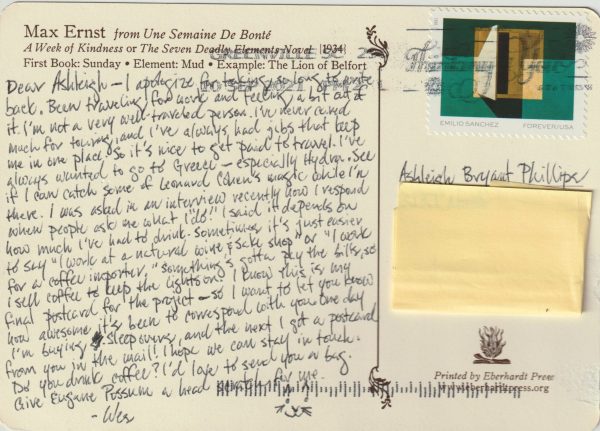 Max Ernst from Une Semaine De Bonté
A Week of Kindness or The Seven Deadly Elements Novel [1934]
First Book: Sunday • Element: Mud • Example: The Lion of Belfort
GREENVILLE SC 29
20 SEP 2021 PM
Dear Ashleigh – I apologize for taking so long to write
back. Been traveling for work and feeling a bit out of
it. I'm not a very well-traveled person. I've never cared
much for touring, and I've always had jobs that keep
me in one place. So it's nice to get paid to travel. I've
always wanted to go to Greece – especially Hydra. See
if I can catch some of Leonard Cohen's magic while I'm
there. I was asked in an interview recently how I respond
when people ask me what I "do." I said it depends on
how much I've had to drink. Sometimes it's just easier
to say "I work at a natural wine & sake shop" or "I work
for a coffee importer," something's gotta pay the bills, so
I sell coffee to keep the lights on. I know this is my
final postcard for the project – so I want to let you know
how awesome it's been to correspond with you. One day
I'm buying Sleepovers, and the next I got a postcard
from you in the mail! I hope we can stay in touch.
Do you drink coffee? I'd love to send you a bag.
Give Eugene Possum a head for me.
– Wes
EMILIO SANCHEZ
FOREVER/USA
Ashleigh Bryant Phillips
Printed by Eberhardt Press
www.eberhardtpress.org